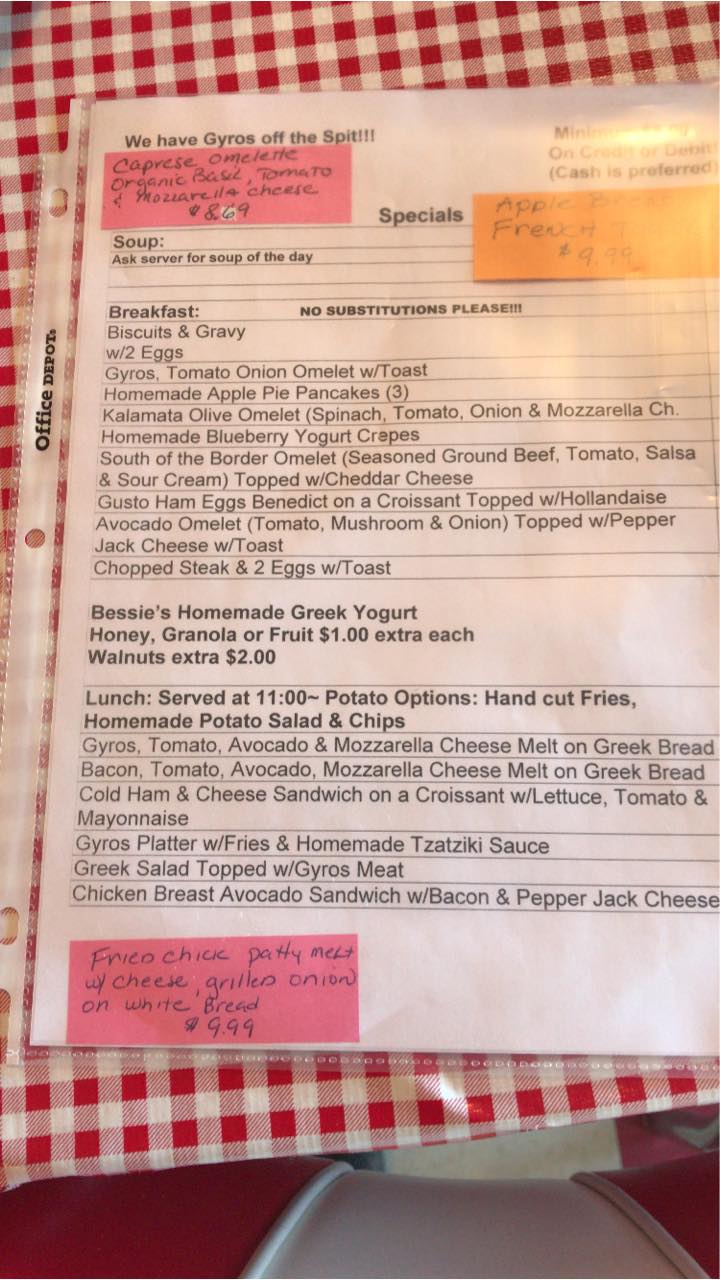 We have Gyros off the Spit!!!
On Credit or Debit
(Cash is preferred)
Caprese omelette
Organic Basil, Tomato
& Mozzarella cheese
$8.69
Specials
Apple
French
$9.99
Soup:
Ask server for soup of the day
Breakfast: NO SUBSTITUTIONS PLEASE!!!
Biscuits & Gravy
w/2 Eggs
Gyros, Tomato Onion Omelet w/Toast
Homemade Apple Pie Pancakes (3)
Kalamata Olive Omelet (Spinach, Tomato, Onion & Mozzarella Ch.
Homemade Blueberry Yogurt Crepes
South of the Border Omelet (Seasoned Ground Beef, Tomato, Salsa
& Sour Cream) Topped w/Cheddar Cheese
Gusto Ham Eggs Benedict on a Croissant Topped w/Hollandaise
Avocado Omelet (Tomato, Mushroom & Onion) Topped w/Pepper
Jack Cheese w/Toast
Chopped Steak & 2 Eggs w/Toast
Bessie's Homemade Greek Yogurt
Honey, Granola or Fruit $1.00 extra each
Walnuts extra $2.00
Lunch: Served at 11:00~ Potato Options: Hand cut Fries,
Homemade Potato Salad & Chips
Gyros, Tomato, Avocado & Mozzarella Cheese Melt on Greek Bread
Bacon, Tomato, Avocado, Mozzarella Cheese Melt on Greek Bread
Cold Ham & Cheese Sandwich on a Croissant w/Lettuce, Tomato &
Mayonnaise
Gyros Platter w/Fries & Homemade Tzatziki Sauce
Greek Salad Topped w/Gyros Meat
Chicken Breast Avocado Sandwich w/Bacon & Pepper Jack Cheese
Fried chick patty melt
w/ cheese, grilled onion
on white Bread
$9.99
Office DEPOT